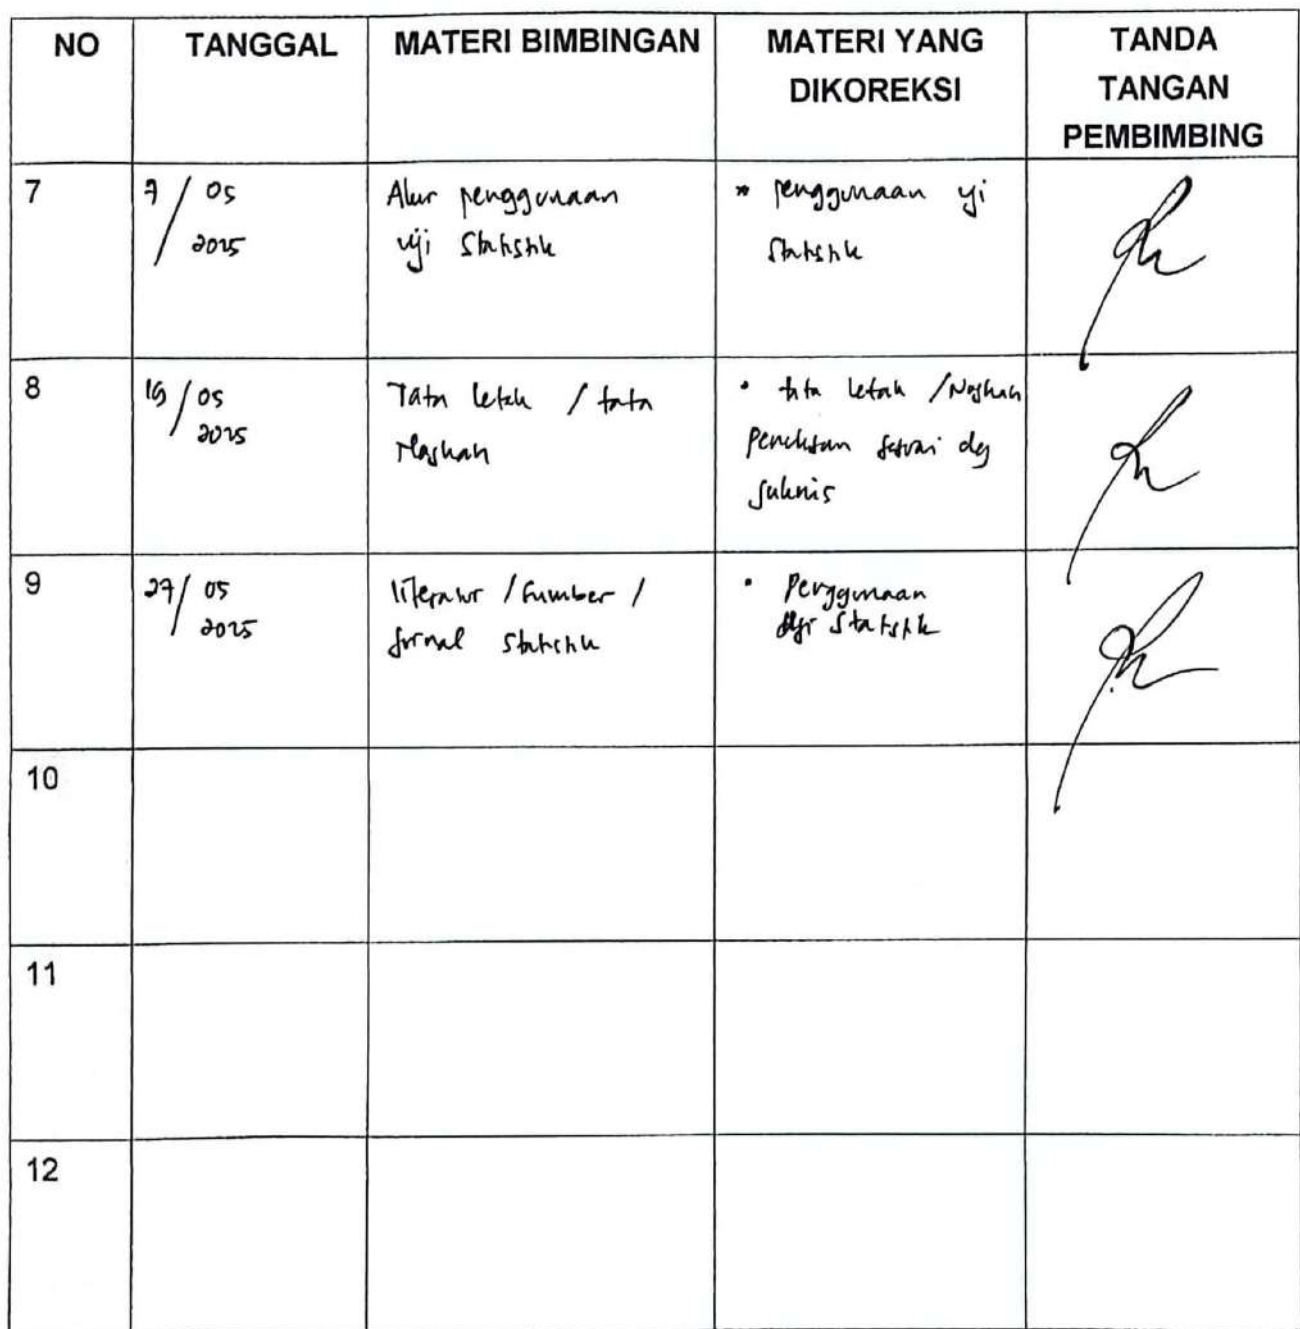 NO TANGGAL MATERI BIMBINGAN MATERI YANG DIKOREKSI TANDA TANGAN PEMBIMBING
7
7/05
2025
Alur penggunaan
uji Statistik
* penggunaan uji
Statistik
8
/05
2025
Tata letak / tata
Naskah
• tata letak / Naskah
penulisan sesuai dg
9
27/05
2025
literatur / sumber /
jurnal statistik
• Penggunaan
uji Statistik
10
11
12